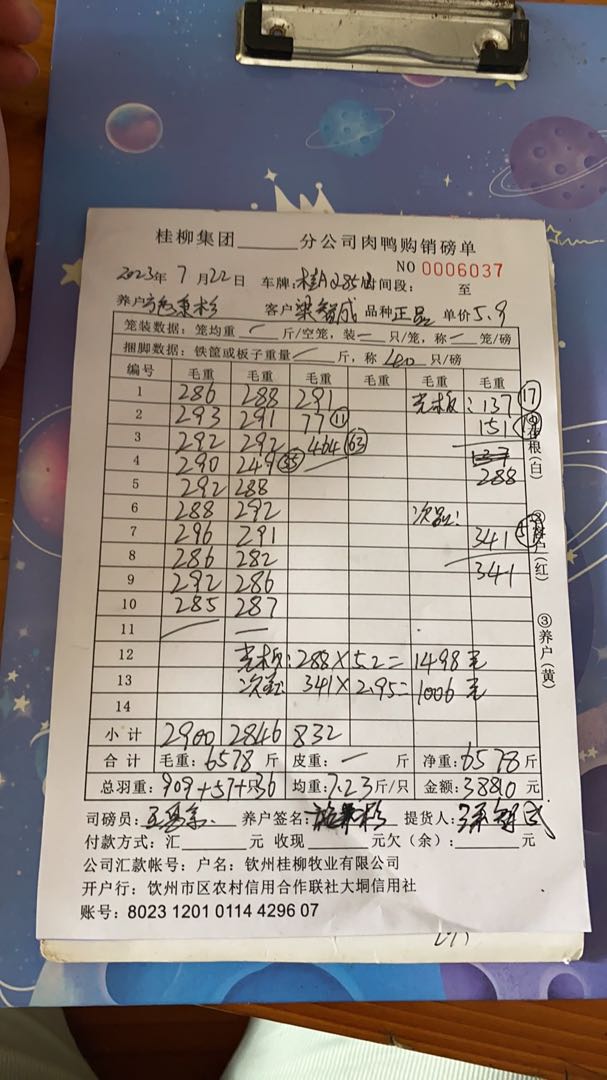 桂柳集团______分公司肉鸭购销磅单
NO 0006037
2023年 7月22日 车牌: 桂A 时间段: 至
养户 客户 梁智成 品种 正品 单价 5.9
笼装数据: 笼均重 — 斤/空笼, 装 — 只/笼, 称 — 笼/磅
捆脚数据: 铁筐或板子重量 — 斤, 称 40 只/磅
编号 毛重 毛重 毛重 毛重 毛重 毛重
1 286 288 291 壳板: 137 ⑰
2 293 291 77 ⑪ 151
3 292 292 464 63
4 290 249 35 288
5 292 288
6 288 292 次品:
7 296 291 341
8 286 282 341
9 292 286
10 285 287
11 — —
12 壳板: 288×5.2= 1498元
13 次品: 341×2.95= 1006元
14
小计 2900 2846 832
合计 毛重: 6578 斤 皮重: — 斤 净重: 6578 斤
总羽重: 909+57+ 只 均重: 7.23 斤/只 金额: 38810 元
司磅员: 养户签名: 提货人:
付款方式: 汇______元 收现______元欠(余): ______元
公司汇款帐号: 户名: 钦州桂柳牧业有限公司
开户行: 钦州市区农村信用合作联社大垌信用社
账号: 8023 1201 0114 4296 07
根(白)
户(红)
③养户(黄)